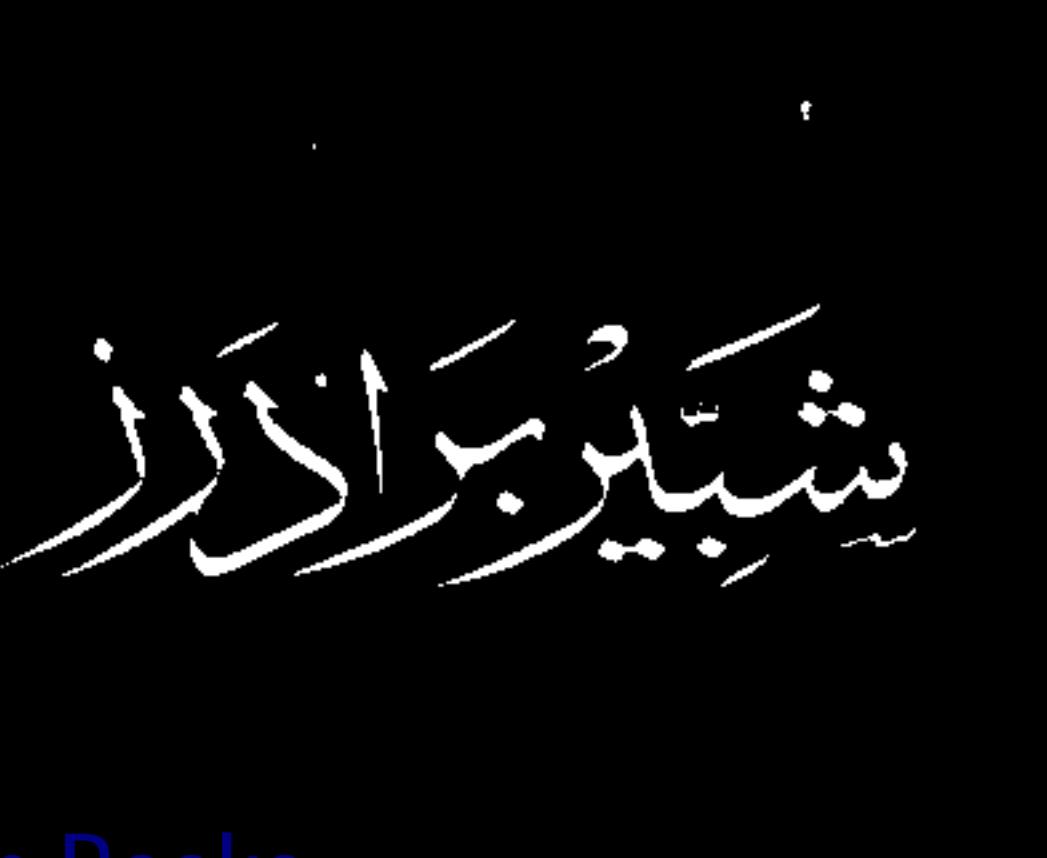 شَبِّیْر بَراذَرز